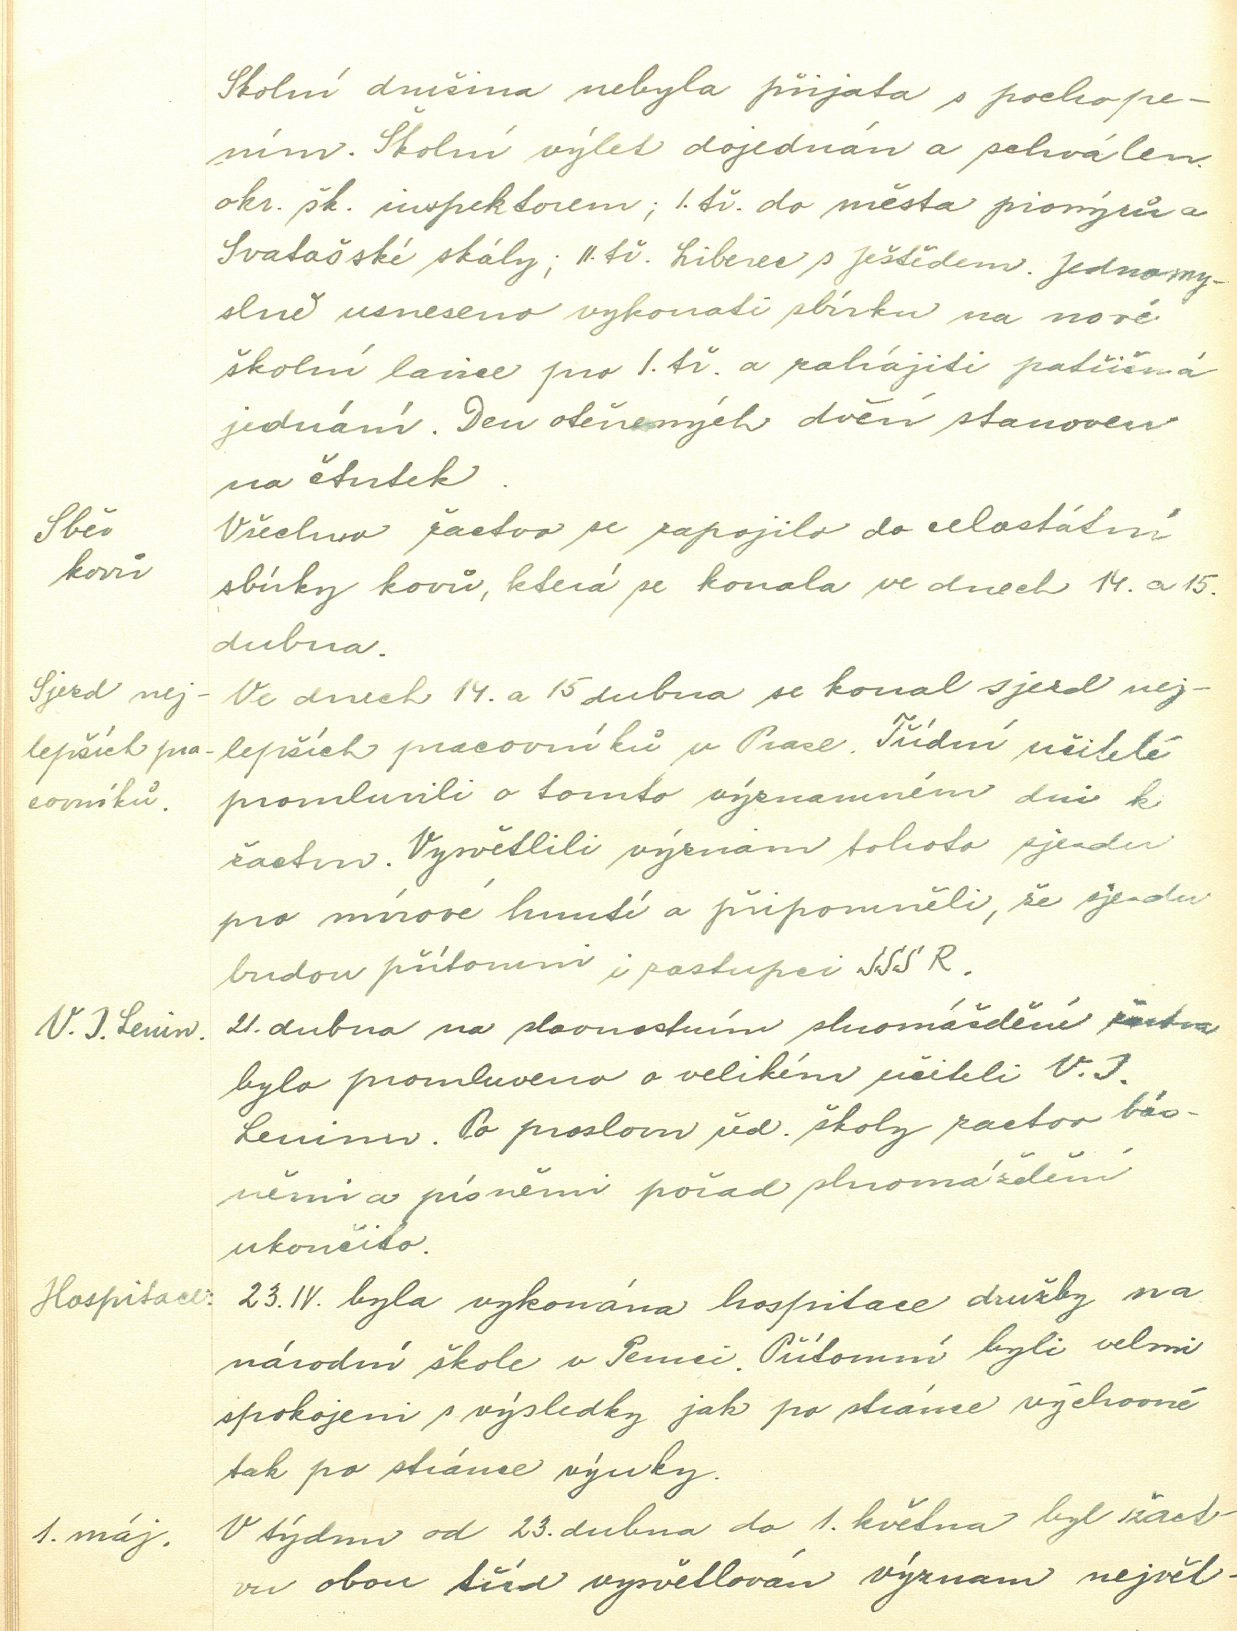 Školní družina nebyla přijata s pochope-
ním. Školní výlet dojednán a schválen
okr. šk. inspektorem; I. tř. do města pionýrů a
Svatošské skály; II. tř. Liberec s Ještědem. Jednomy-
slně usneseno vykonati sbírku na nové
školní lavice pro I. tř. a zahájiti patřičná
jednání. Den otevřených dveří stanoven
na čtvrtek.
Sběr
kovů
Všechno žactvo se zapojilo do celostátní
sbírky kovů, která se konala ve dnech 14. a 15.
dubna.
Sjezd nej-
lepších pra-
covníků.
Ve dnech 14. a 15 dubna se konal sjezd nej-
lepších pracovníků v Praze. Třídní učitelé
promluvili o tomto významném dni k
žactvu. Vysvětlili význam tohoto sjezdu
pro mírové hnutí a připomněli, že sjezdu
budou přítomni i zastupci SSSR.
V. I. Lenin.
21. dubna na slavnostním shromáždění žactva
bylo promluveno o velikém učiteli V. I.
Leninu. Po proslovu řed. školy zactvo bás-
němi a písněmi pořad shromáždění
ukončilo.
Hospitace:
23. IV. byla vykonána hospitace družby na
národní škole v Pernci. Přítomní byli velmi
spokojeni s výsledky jak po stránce výchovné
tak po stránce výuky.
1. máj.
V týdnu od 23. dubna do 1. května byl žact-
vu obou tříd vysvětlován význam největ-